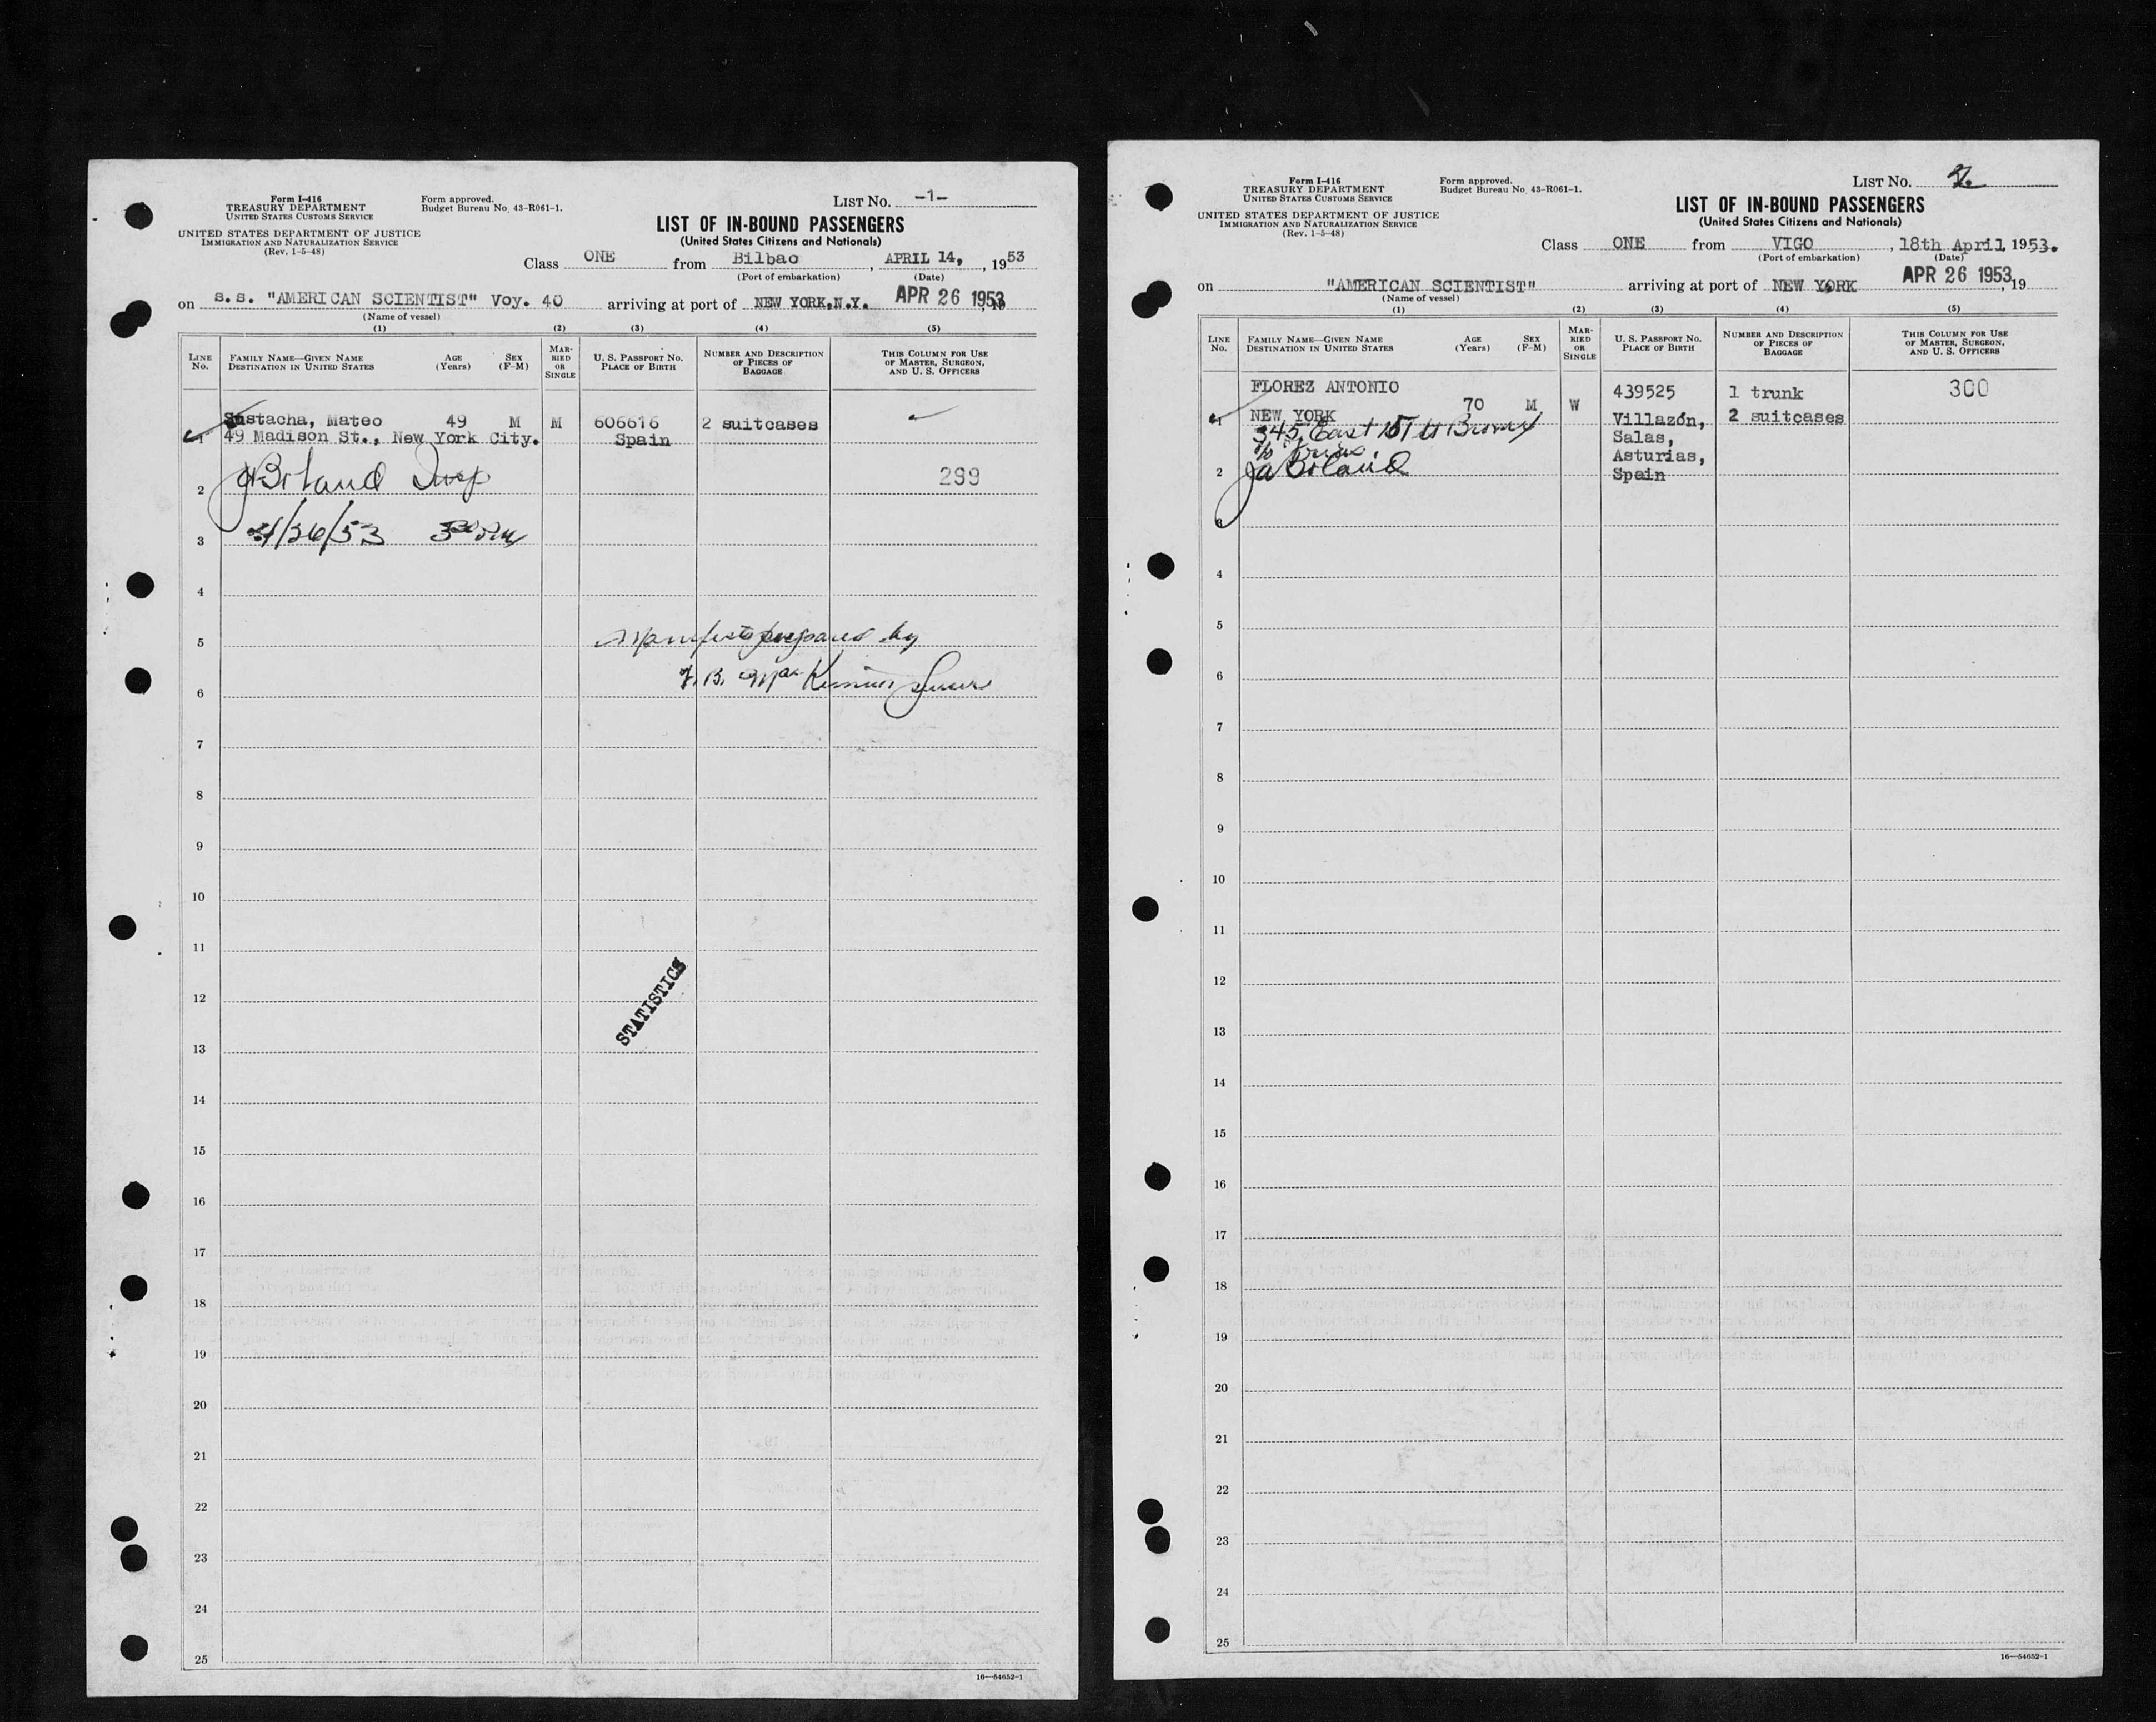 Form I-416
TREASURY DEPARTMENT
UNITED STATES CUSTOMS SERVICE
UNITED STATES DEPARTMENT OF JUSTICE
IMMIGRATION AND NATURALIZATION SERVICE
(Rev. 1-5-48)
Form approved.
Budget Bureau No. 43-R061-1.
LIST NO. -1-
LIST OF IN-BOUND PASSENGERS
(United States Citizens and Nationals)
Class ONE from Bilbao, APRIL 14, 1953
(Port of embarkation) (Date)
on s.s. "AMERICAN SCIENTIST" Voy. 40 arriving at port of NEW YORK, N.Y. APR 26 1953, 19
(Name of vessel)
(1) (2) (3) (4) (5)
LINE NO. FAMILY NAME—GIVEN NAME DESTINATION IN UNITED STATES AGE (Years) SEX (F-M) MARRIED OR SINGLE U. S. PASSPORT NO. PLACE OF BIRTH NUMBER AND DESCRIPTION OF PIECES OF BAGGAGE THIS COLUMN FOR USE OF MASTER, SURGEON, AND U. S. OFFICERS
Mateo 49 M M 606616 2 suitcases
1 49 Madison St., New York City. Spain
2 Boland Insp 299
3 4/26/53 5:30 PM
4
5 Manifest prepared by
6 Purser
7
8
9
10
11
12
STATISTICS
13
14
15
16
17
18
19
20
21
22
23
24
25
16—54652-1
Form I-416
TREASURY DEPARTMENT
UNITED STATES CUSTOMS SERVICE
UNITED STATES DEPARTMENT OF JUSTICE
IMMIGRATION AND NATURALIZATION SERVICE
(Rev. 1-5-48)
Form approved.
Budget Bureau No. 43-R061-1.
LIST NO. 2.
LIST OF IN-BOUND PASSENGERS
(United States Citizens and Nationals)
Class ONE from VIGO, 18th April, 1953.
(Port of embarkation) (Date)
on "AMERICAN SCIENTIST" arriving at port of NEW YORK APR 26 1953, 19
(Name of vessel)
(1) (2) (3) (4) (5)
LINE NO. FAMILY NAME—GIVEN NAME DESTINATION IN UNITED STATES AGE (Years) SEX (F-M) MARRIED OR SINGLE U. S. PASSPORT NO. PLACE OF BIRTH NUMBER AND DESCRIPTION OF PIECES OF BAGGAGE THIS COLUMN FOR USE OF MASTER, SURGEON, AND U. S. OFFICERS
FLOREZ ANTONIO 70 M W 439525 1 trunk 300
1 NEW YORK Villazón, 2 suitcases
345 East Bronx Salas,
Asturias,
2 Boland Spain
3
4
5
6
7
8
9
10
11
12
13
14
15
16
17
18
19
20
21
22
23
24
25
16—54652-1